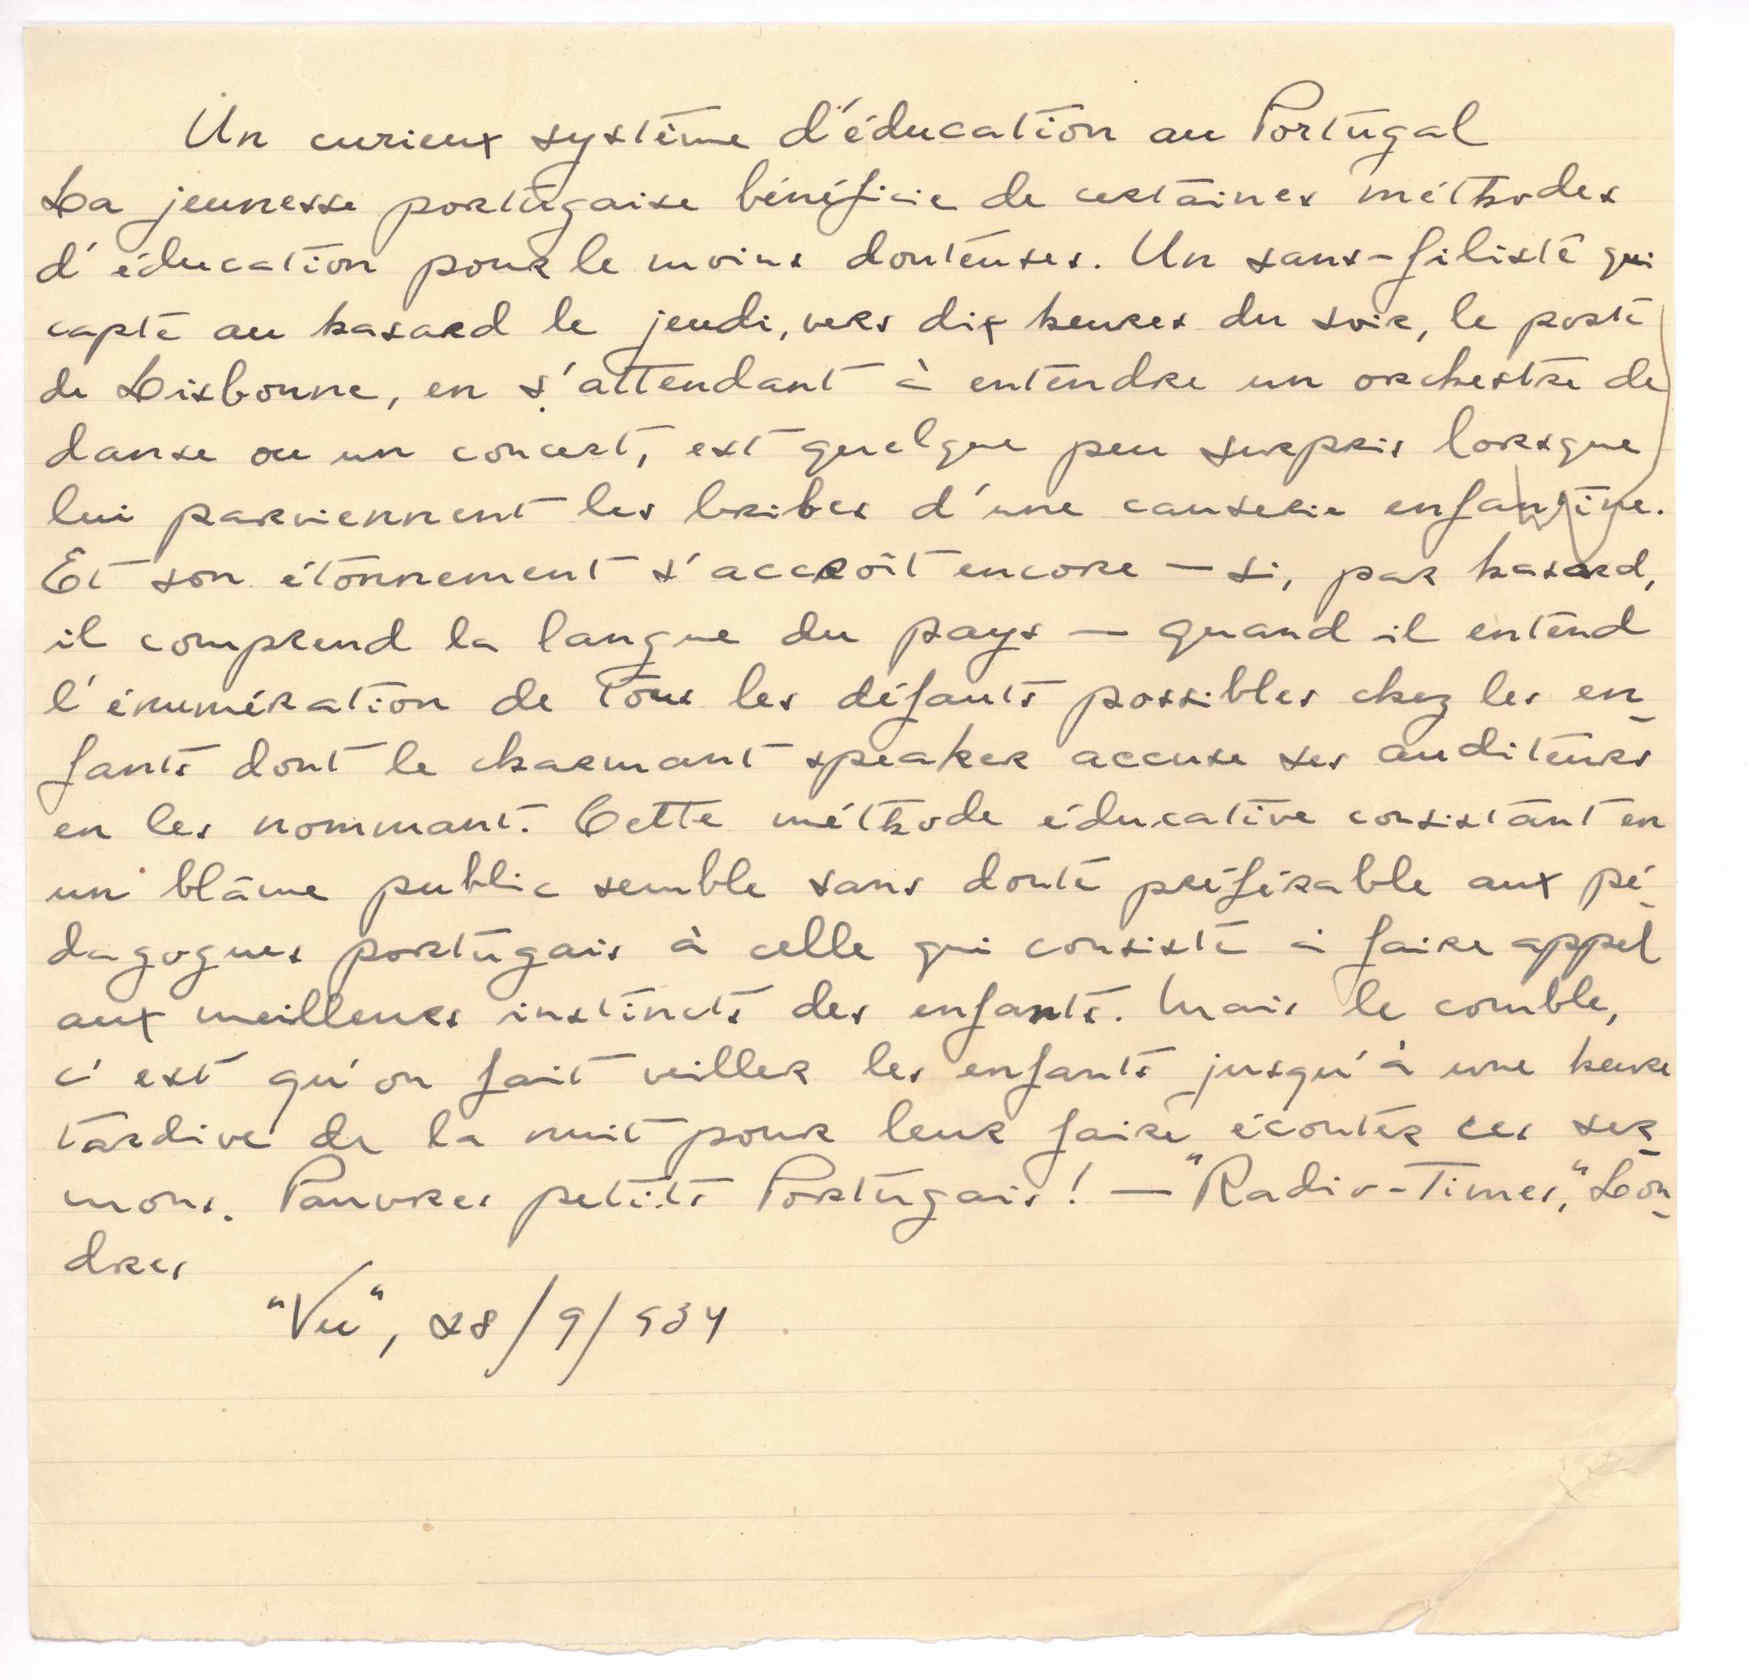 Un curieux système d'éducation au Portugal
La jeunesse portugaise bénéficie de certaines méthodes
d'éducation pour le moins douteuses. Un sans-filiste qui
capte au hasard le jeudi, vers dix heures du soir, le poste
de Lisbonne, en s'attendant à entendre un orchestre de
danse ou un concert, est quelque peu surpris lorsque
lui parviennent les bribes d'une causerie enfantine.
Et son étonnement s'accroît encore — si, par hasard,
il comprend la langue du pays — quand il entend
l'énumération de tous les défauts possibles chez les en-
fants dont le charmant speaker accuse ses auditeurs
en les nommant. Cette méthode éducative consistant en
un blâme public semble sans doute préférable aux pé-
dagogues portugais à celle qui consiste à faire appel
aux meilleurs instincts des enfants. Mais le comble,
c'est qu'on fait veiller les enfants jusqu'à une heure
tardive de la nuit pour leur faire écouter ces ser-
mons. Pauvres petits Portugais! — "Radio-Times," Lon-
dres
"Vu", 28/9/934